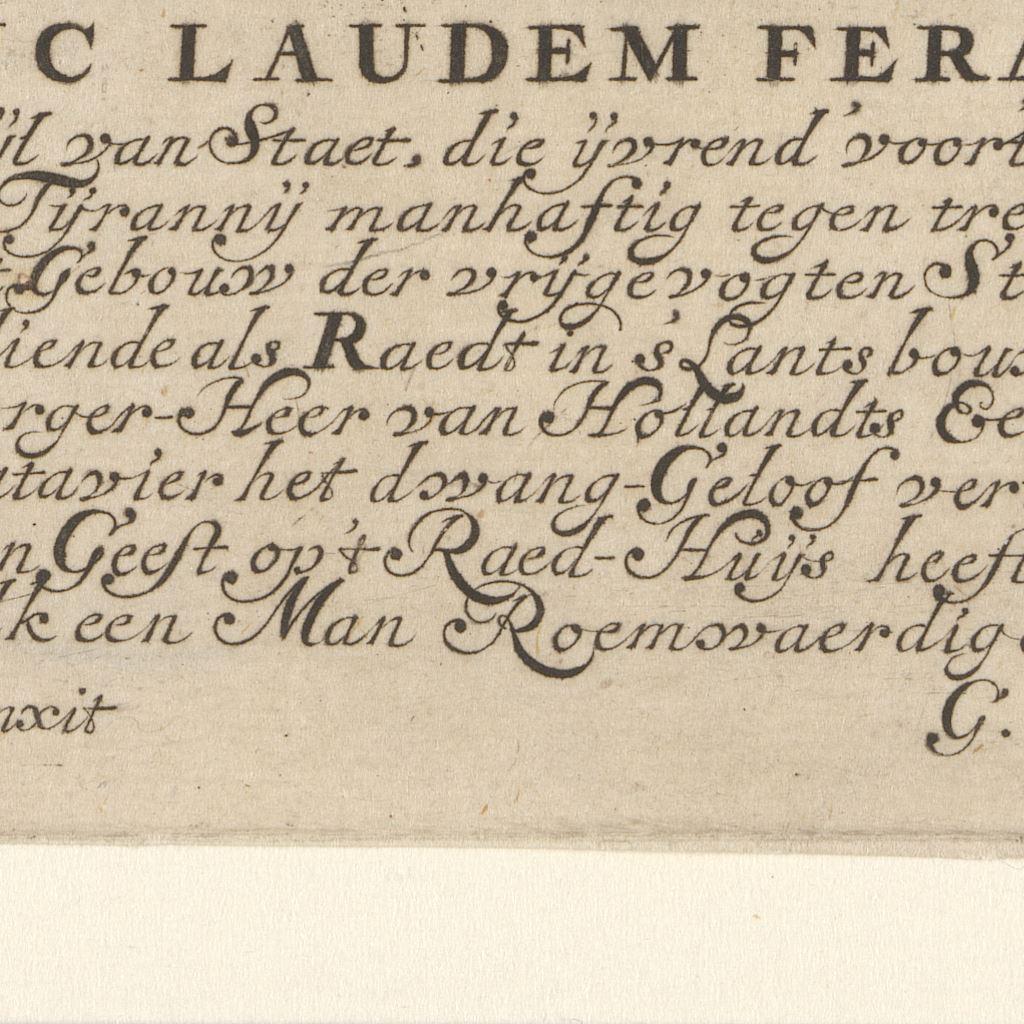 C LAUDEM FERA
ÿl van Staet, die ÿvrend voort
Tÿrannÿ manhaftig tegen tre
t Gebouw der vrÿgevogten St
liende als Raedt in s'Lants bouw
rger-Heer van Hollandts Ee
atavier het dwang-Geloof ver
n Geest op't Raed-Huÿs heeft
lk een Man Roemwaerdig
nxit G.